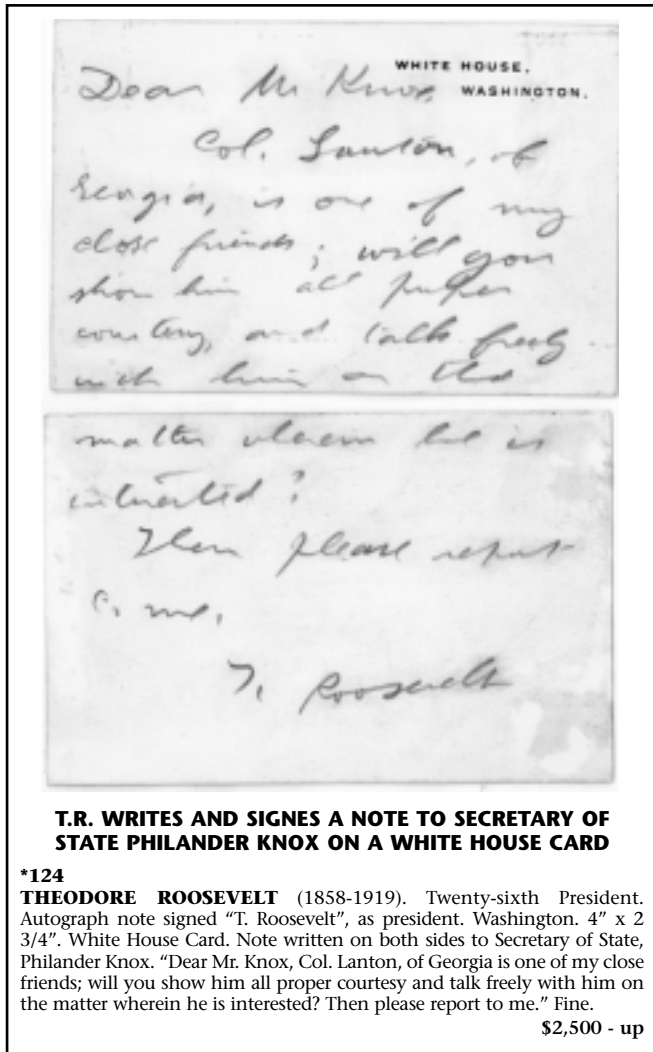 WHITE HOUSE,
WASHINGTON.
Dear Mr Knox,
Col. Lanton, of
Georgia, is one of my
close friends; will you
show him all proper
courtesy, and talk freely
with him on the
matter wherein he is
interested?
Then please report
to me.
T. Roosevelt
T.R. WRITES AND SIGNES A NOTE TO SECRETARY OF
STATE PHILANDER KNOX ON A WHITE HOUSE CARD
*124
THEODORE ROOSEVELT (1858-1919). Twenty-sixth President.
Autograph note signed “T. Roosevelt”, as president. Washington. 4” x 2
3/4”. White House Card. Note written on both sides to Secretary of State,
Philander Knox. “Dear Mr. Knox, Col. Lanton, of Georgia is one of my close
friends; will you show him all proper courtesy and talk freely with him on
the matter wherein he is interested? Then please report to me.” Fine.
$2,500 - up